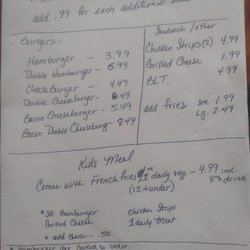 add .99 for each additional
Burgers-
Hamburger - 3.99
Double Hamburger - 6.99
Cheese Burger - 4.49
Double Cheeseburger - 8.49
Bacon Cheeseburger - 5.49
Bacon Double Cheeseburg - 9.49
Sandwich / other
Chicken Strips(2) 4.99
Grilled Cheese 1.99
BLT 4.99
add fries sm. 1.99
Lg. 2.49
Kids Meal
Comes with French fries & daily veg. - 4.99 incl drink
(12 & under)
*JR Hamburger
Grilled Cheese
* add cheese... .50
Chicken Strips
1 daily Meat
* Hamburger are cooked to order...